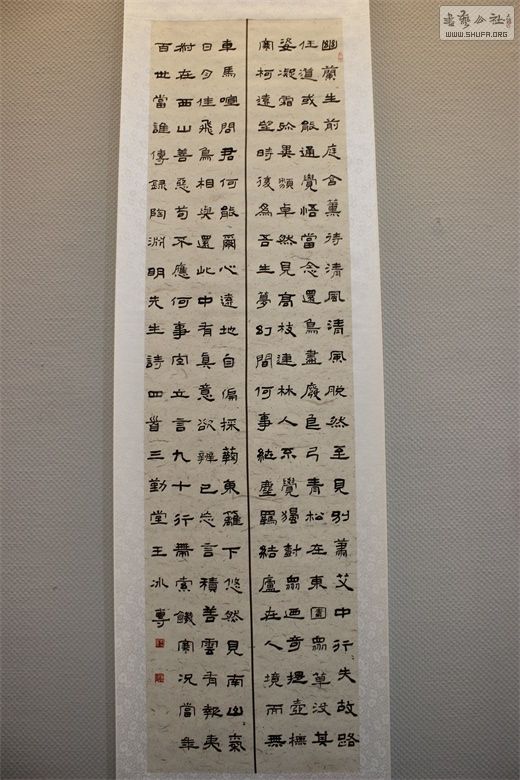 書藝公社
WWW.SHUFA.ORG
幽蘭生前庭含薰待清風清風脫然至見別蕭艾中行失故路
任道或能通覺悟當念還鳥盡廢良弓青松在東園眾草沒其
姿凝霜殄異類卓然見高枝連林人不覺獨樹眾迺奇提壺撫
寒柯遠望時復為吾生夢幻間何事紲塵羈結廬在人境而無
車馬喧問君何能爾心遠地自偏採菊東籬下悠然見南山氣
日夕佳飛鳥相與還此中有真意欲辨已忘言積善雲有報夷
叔在西山善惡苟不應何事空立言九十行帶索饑寒況當年
百世當誰傳錄陶淵明先生詩四首三勤堂王冰書